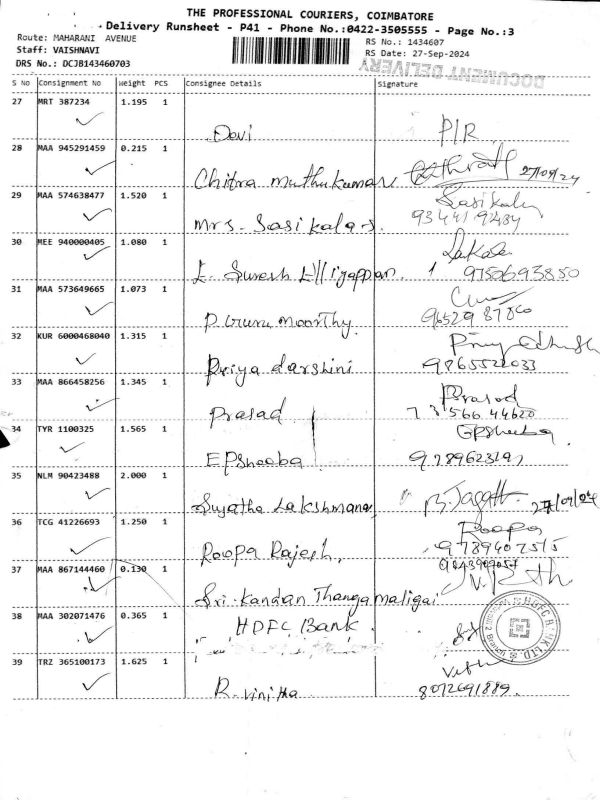 THE PROFESSIONAL COURIERS, COIMBATORE
Delivery Runsheet - P41 - Phone No.:0422-3505555 - Page No.:3
Route: MAHARANI AVENUE
RS No.: 1434607
Staff: VAISHNAVI
RS Date: 27-Sep-2024
DRS No.: DCJB143460703
DOCUMENT DELIVERY
S No Consignment No Weight PCS Consignee Details Signature
27 MRT 387234 1.195 1
Devi P/R
28 MAA 945291459 0.215 1
Chitra Muthukumar 27/09/24
29 MAA 574638477 1.520 1
Sasikala
Mrs. Sasikala S. 9344192484
30 MEE 940000405 1.080 1
L. Suresh 9750693850
31 MAA 573649665 1.073 1
P. Guru Moorthy
32 KUR 6000468040 1.315 1
Priya darshini 9865522033
33 MAA 866458256 1.345 1
Prasad
Prasad
34 TYR 1100325 1.565 1
EPSheeba
EPSheeba
35 NLM 90423488 2.000 1
Sujatha Lakshmanan B. Jagatt 27/09/24
36 TCG 41226693 1.250 1
Roopa
Roopa Rajesh. 9789407515
37 MAA 867144460 0.130 1
Sri. Kandan Thangamaligai
38 MAA 302071476 0.365 1
HDFC Bank
HDFC BANK LTD.
39 TRZ 365100173 1.625 1
R. Vinitha 8072691889.